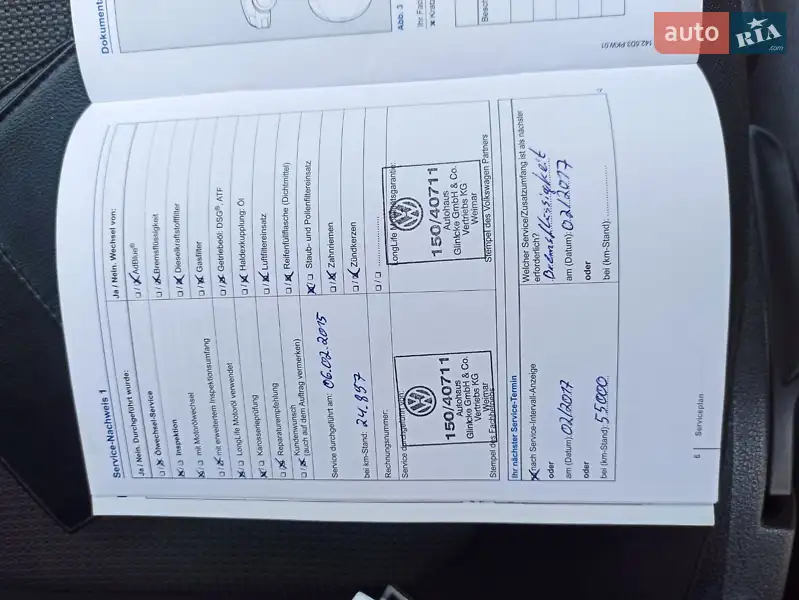 Dokument
Abb. 3
Ihr Fac
Besch
142.5D3.PKW.01
auto RIA
.com
Service-Nachweis 1
Ja / Nein. Durchgeführt wurde:
Ölwechsel-Service
Inspektion
mit Motorölwechsel
mit erweitertem Inspektionsumfang
LongLife Motoröl verwendet
Karosserieprüfung
Reparaturempfehlung
Kundenwunsch
(auch auf dem Auftrag vermerken)
Service durchgeführt am: 06.02.2015
bei km-Stand: 24.857
Rechnungsnummer:
Service durchgeführt von:
150/40711
Autohaus
Glinicke GmbH & Co.
Vertriebs KG
Weimar
Stempel des Fachbetriebs
Ja / Nein. Wechsel von:
AdBlue®
Bremsflüssigkeit
Dieselkraftstofffilter
Gasfilter
Getriebeöl: DSG®, ATF
Haldexkupplung: Öl
Luftfiltereinsatz
Reifenfüllflasche (Dichtmittel)
Staub- und Pollenfiltereinsatz
Zahnriemen
Zündkerzen
LongLife Mobilitätsgarantie:
150/40711
Autohaus
Glinicke GmbH & Co.
Vertriebs KG
Weimar
Stempel des Volkswagen Partners
Ihr nächster Service-Termin
nach Service-Intervall-Anzeige
oder
am (Datum): 02/2017
oder
bei (km-Stand): 55000
Welcher Service/Zusatzumfang ist als nächster
erforderlich?
Bremsflüssigkeit
am (Datum): 02/2017
oder
bei (km-Stand):
6 Serviceplan